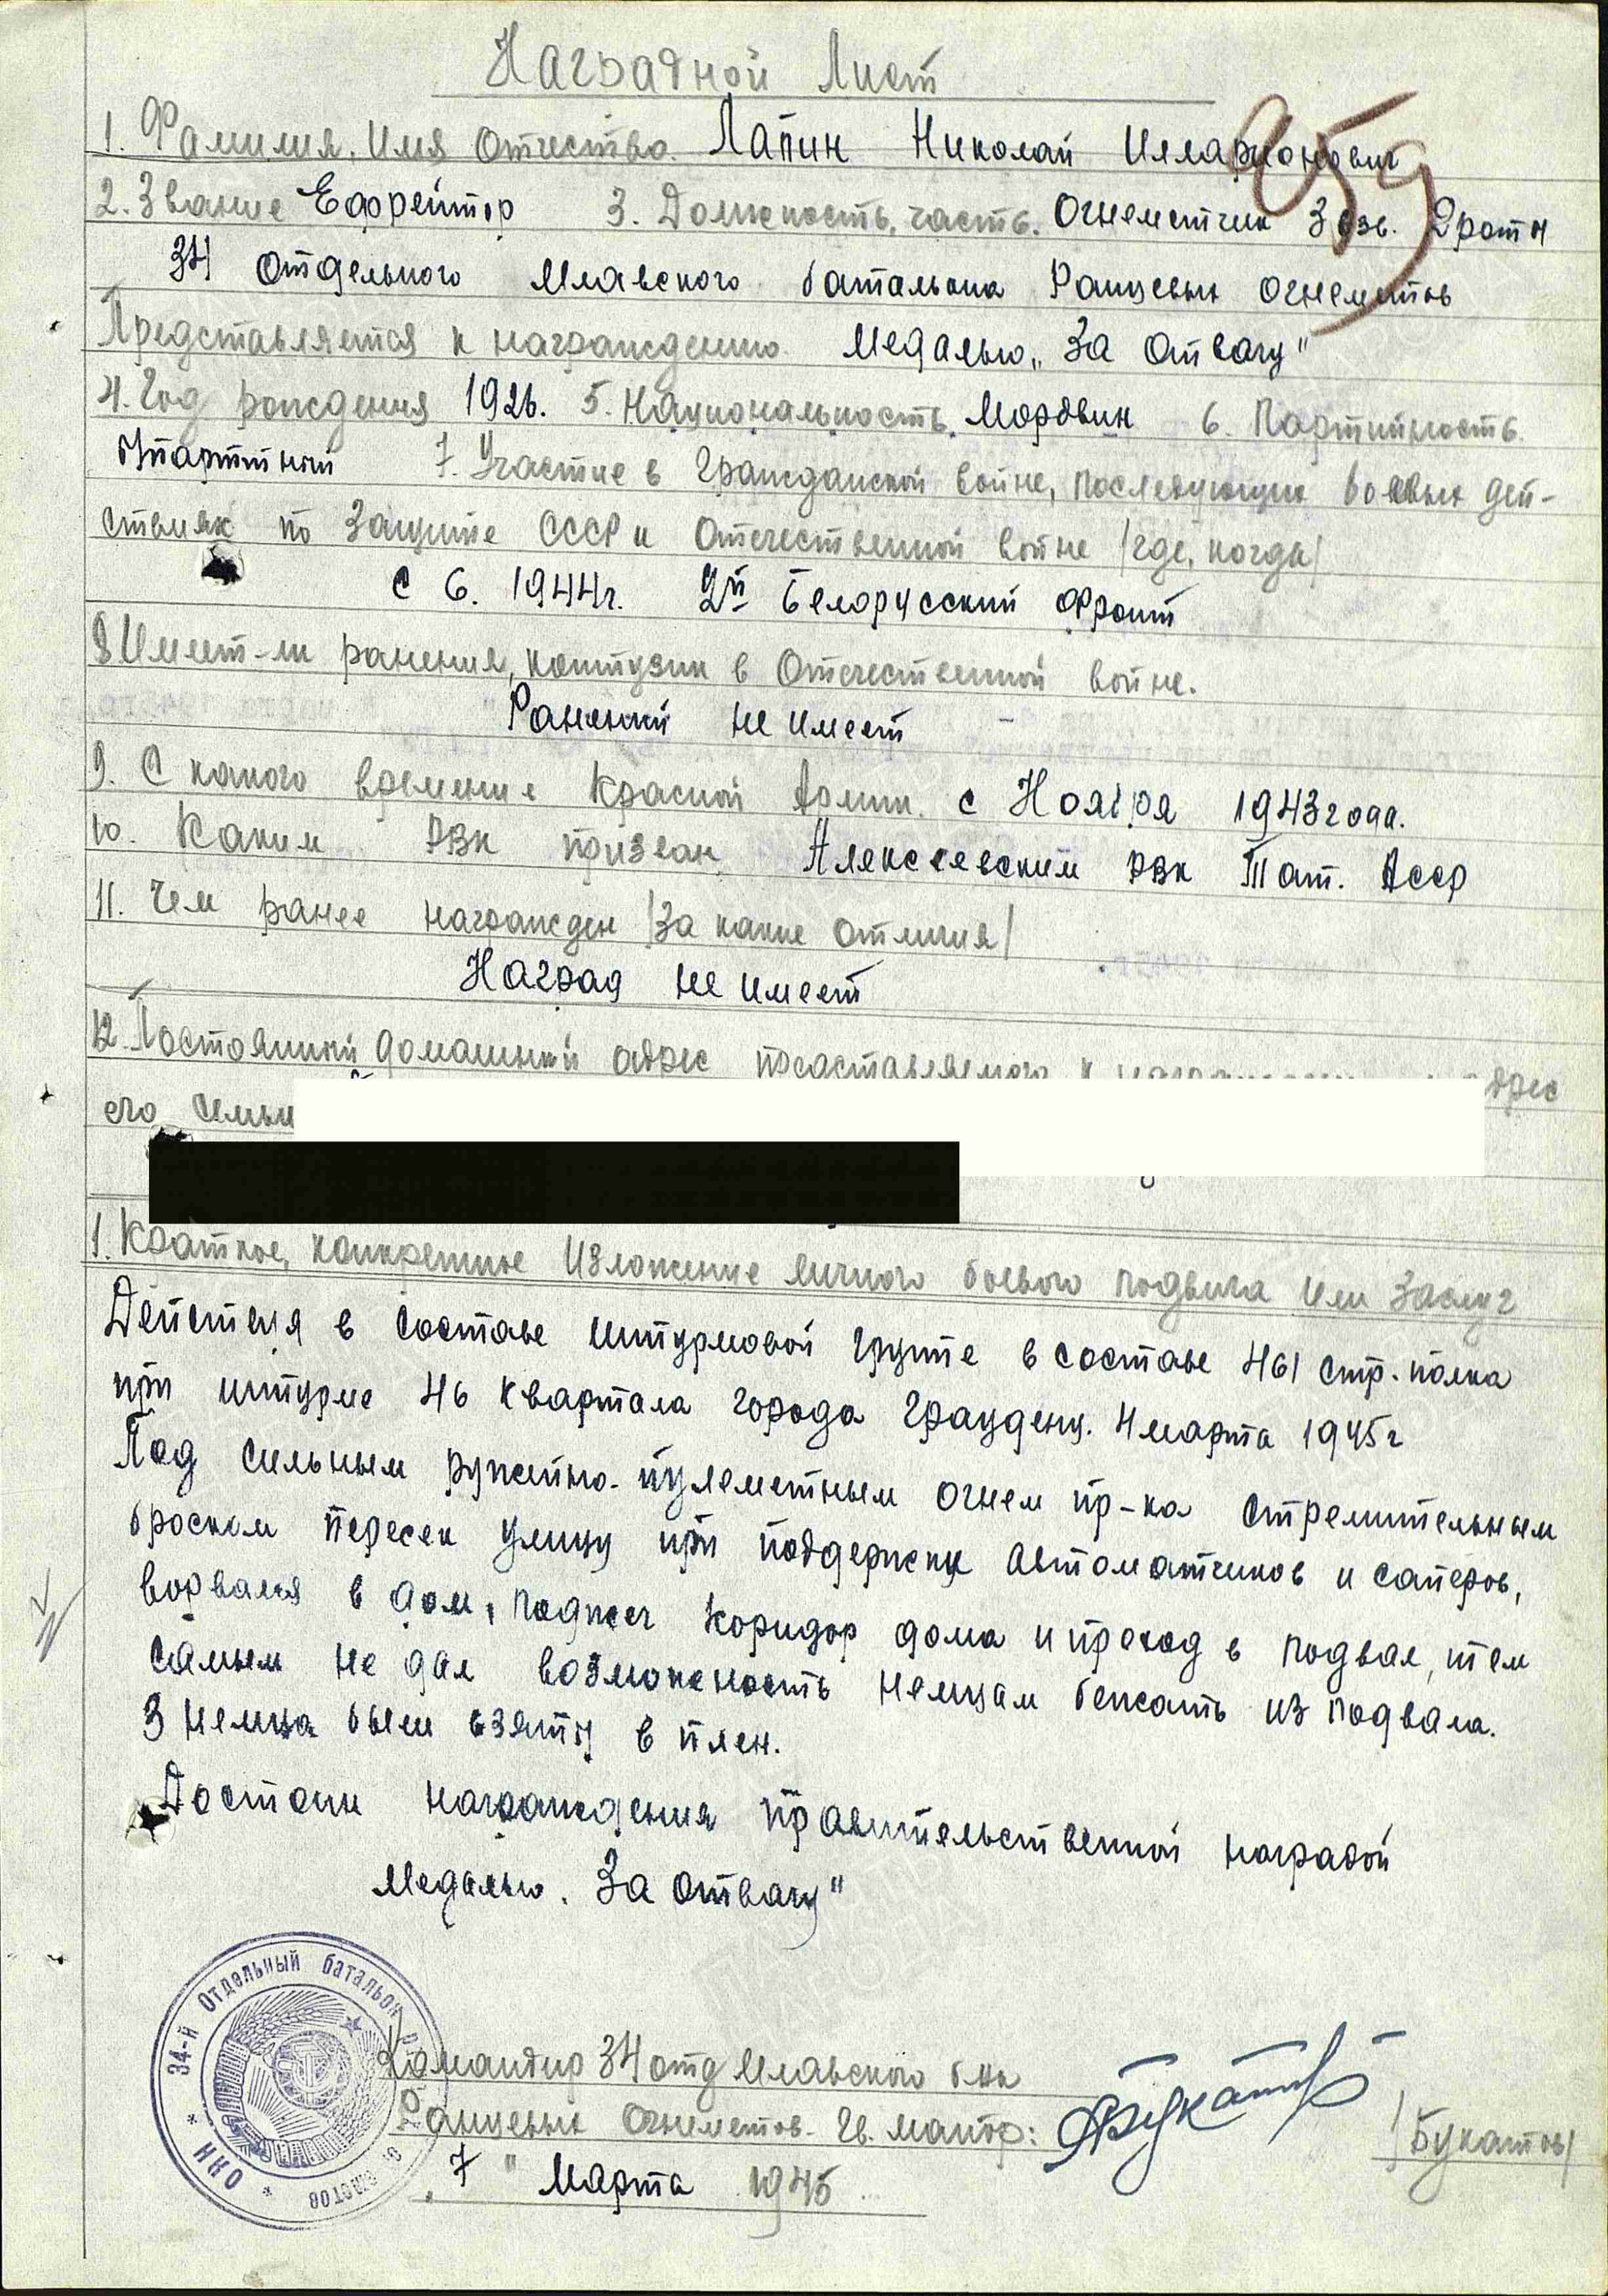 Наградной Лист
959
1. Фамилия, Имя Отчество. Лапин Николай Илларионович
2. Звание Ефрейтор 3. Должность, часть. Огнеметчик 3 взв. 2 роты
34 отдельного Млавского батальона Ранцевых огнеметов
Представляется к награждению Медалью „За отвагу"
4. Год рождения 1926. 5. Национальность. Мордвин 6. Партийность.
б/партийный 7. Участие в Гражданской войне, последующих боевых дей-
ствиях по защите СССР и Отечественной войне /где, когда/
с 6. 1944г. 2й Белорусский Фронт
8 Имеет-ли ранения, контузии в Отечественной войне.
Ранений не имеет
9. С какого времени в Красной Армии. с Ноября 1943 года.
10. Каким РВК призван. Алексеевским РВК Тат. АССР
11. Чем ранее награжден /за какие отличия/
Наград не имеет
12. Постоянный домашний адрес представляемого к адрес
его семьи
1. Краткое, конкретное изложение личного боевого подвига или заслуг
Действуя в составе штурмовой группе в составе 461 стр. полка
при штурме 46 квартала города Грауденц. 4 марта 1945г
Под сильным ружейно-пулеметным огнем пр-ка стремительным
броском пересек улицу при поддержке автоматчиков и саперов,
ворвался в дом, поджег коридор дома и проход в подвал, тем
самым не дал возможность немцам бежать из подвала.
3 немца были взяты в плен.
Достоин награждения правительственной наградой
Медалью „За отвагу"
34-й Отдельный батальон
НКО
Командир 34 отд Млавского б-на
Ранцевых Огнеметов. Гв. майор:
/Букатов/
„7" Марта 1945